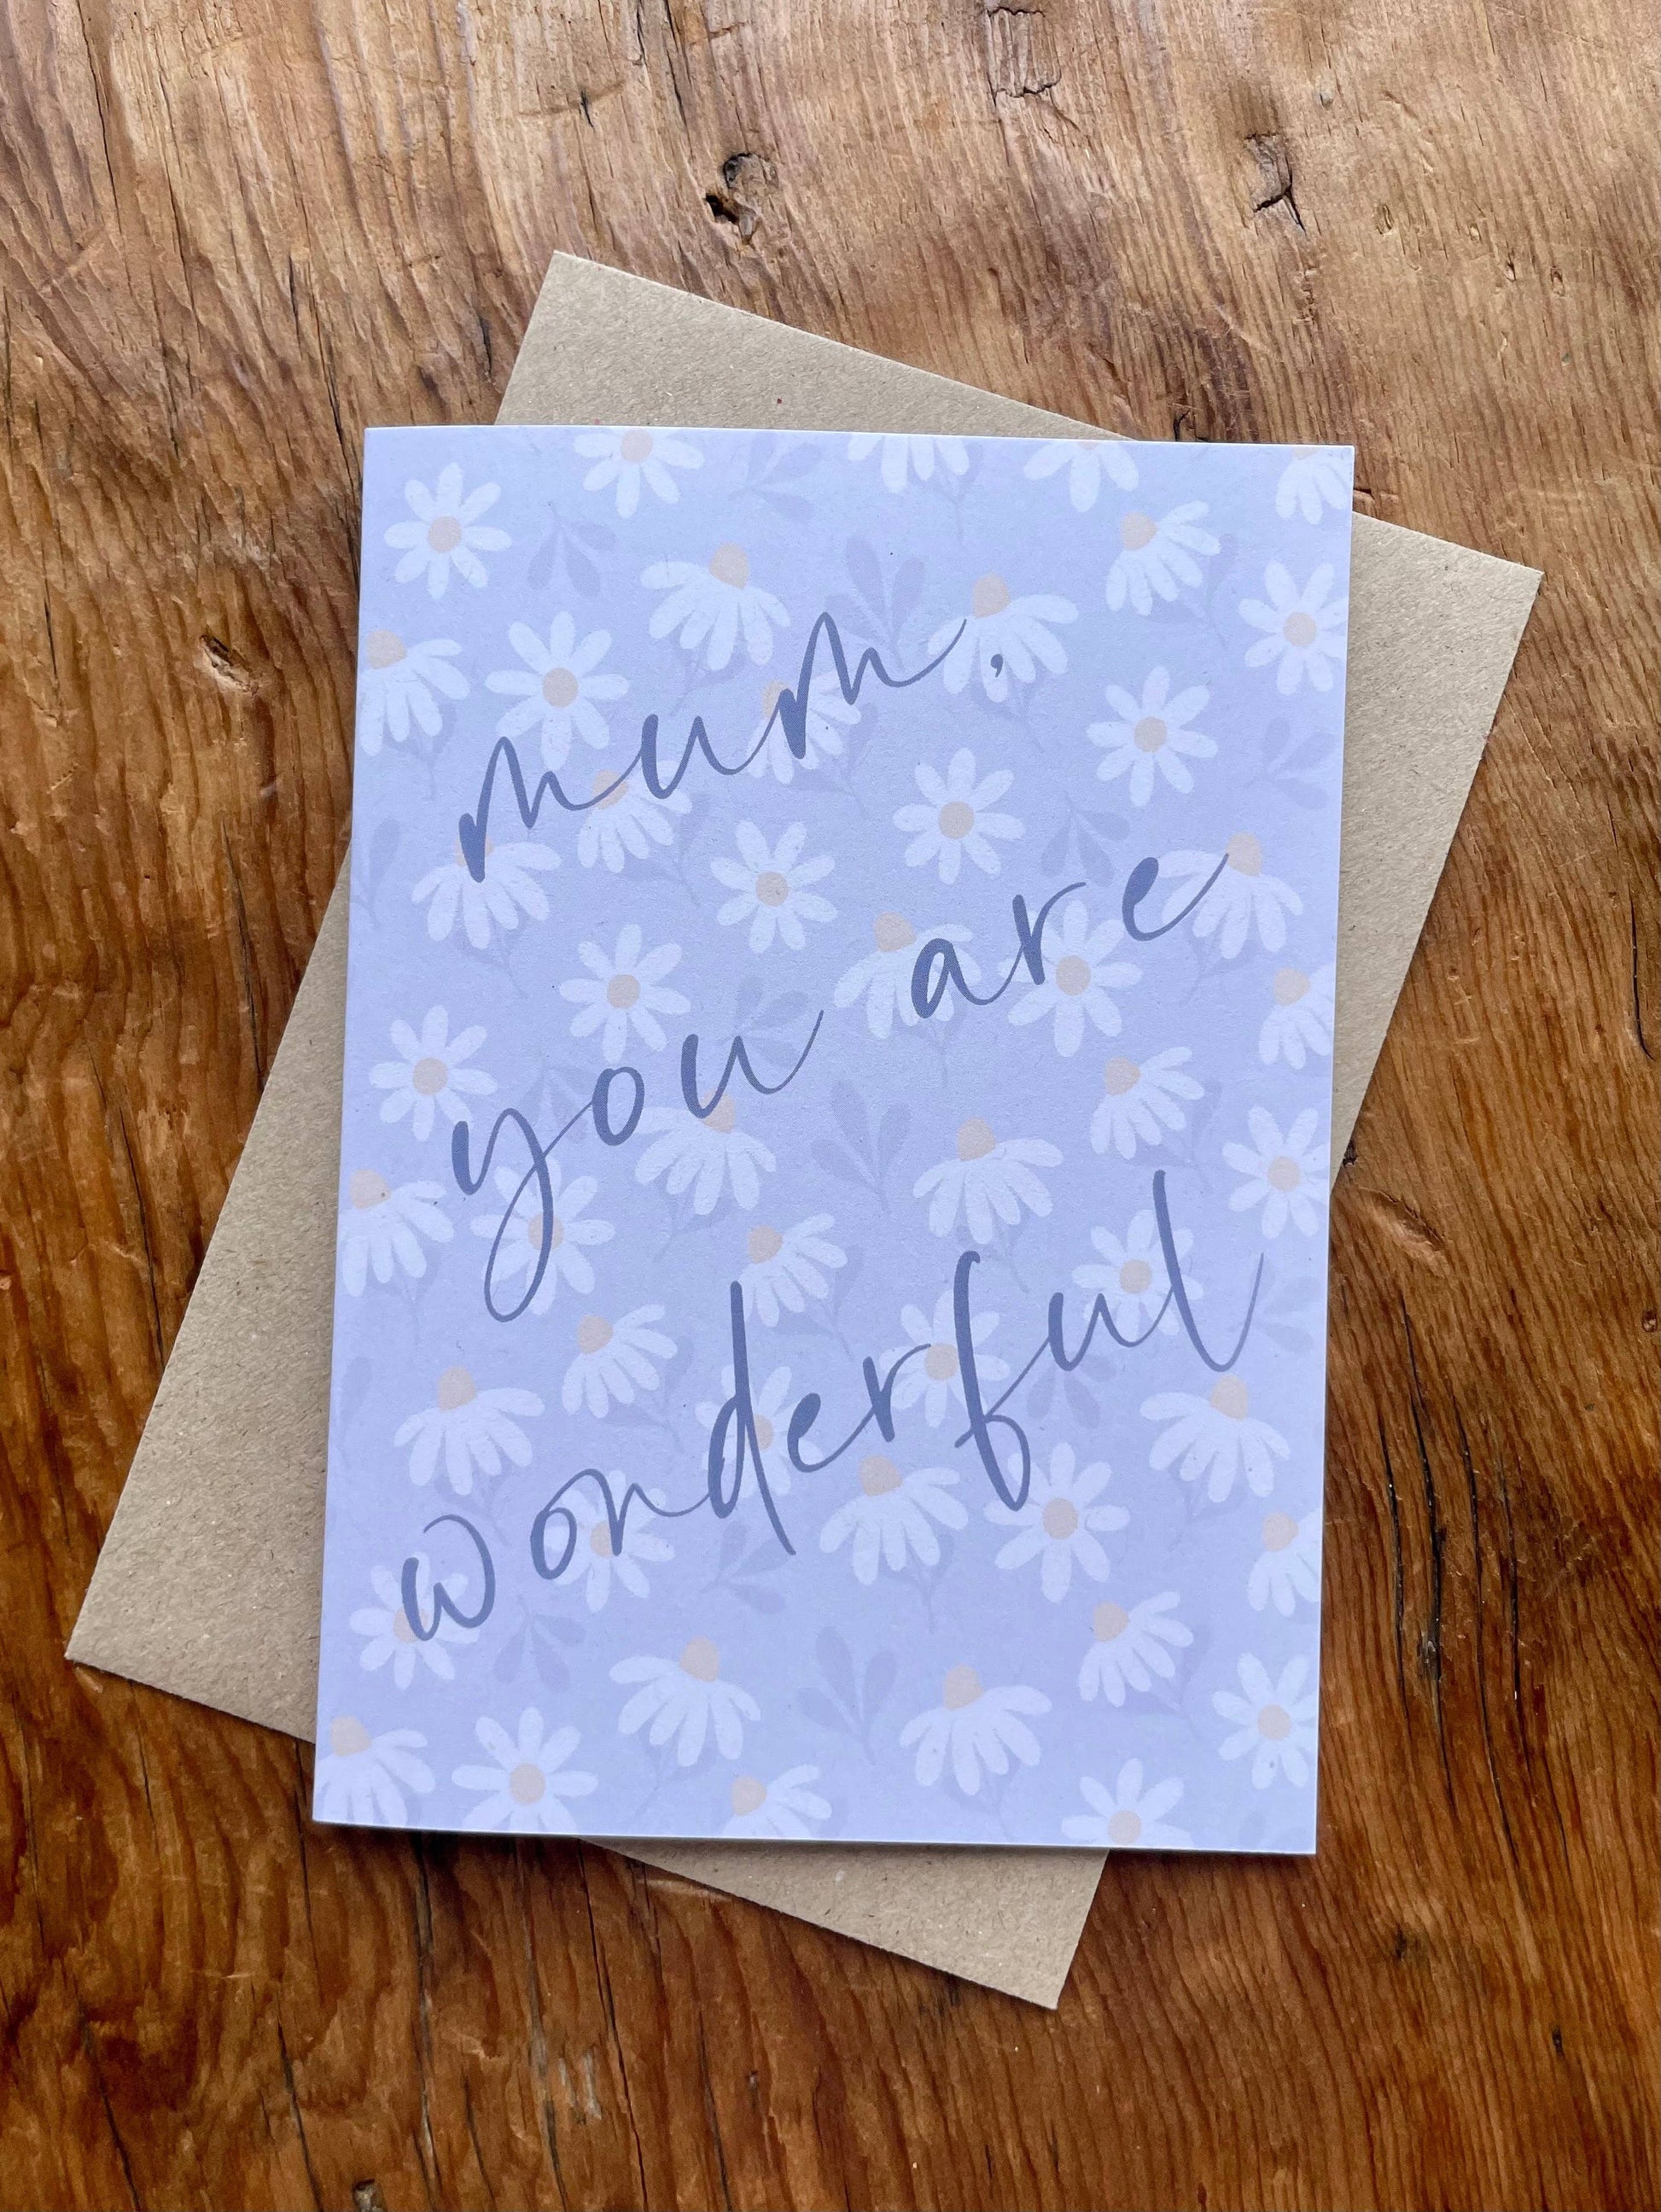 mum,
you are
wonderful